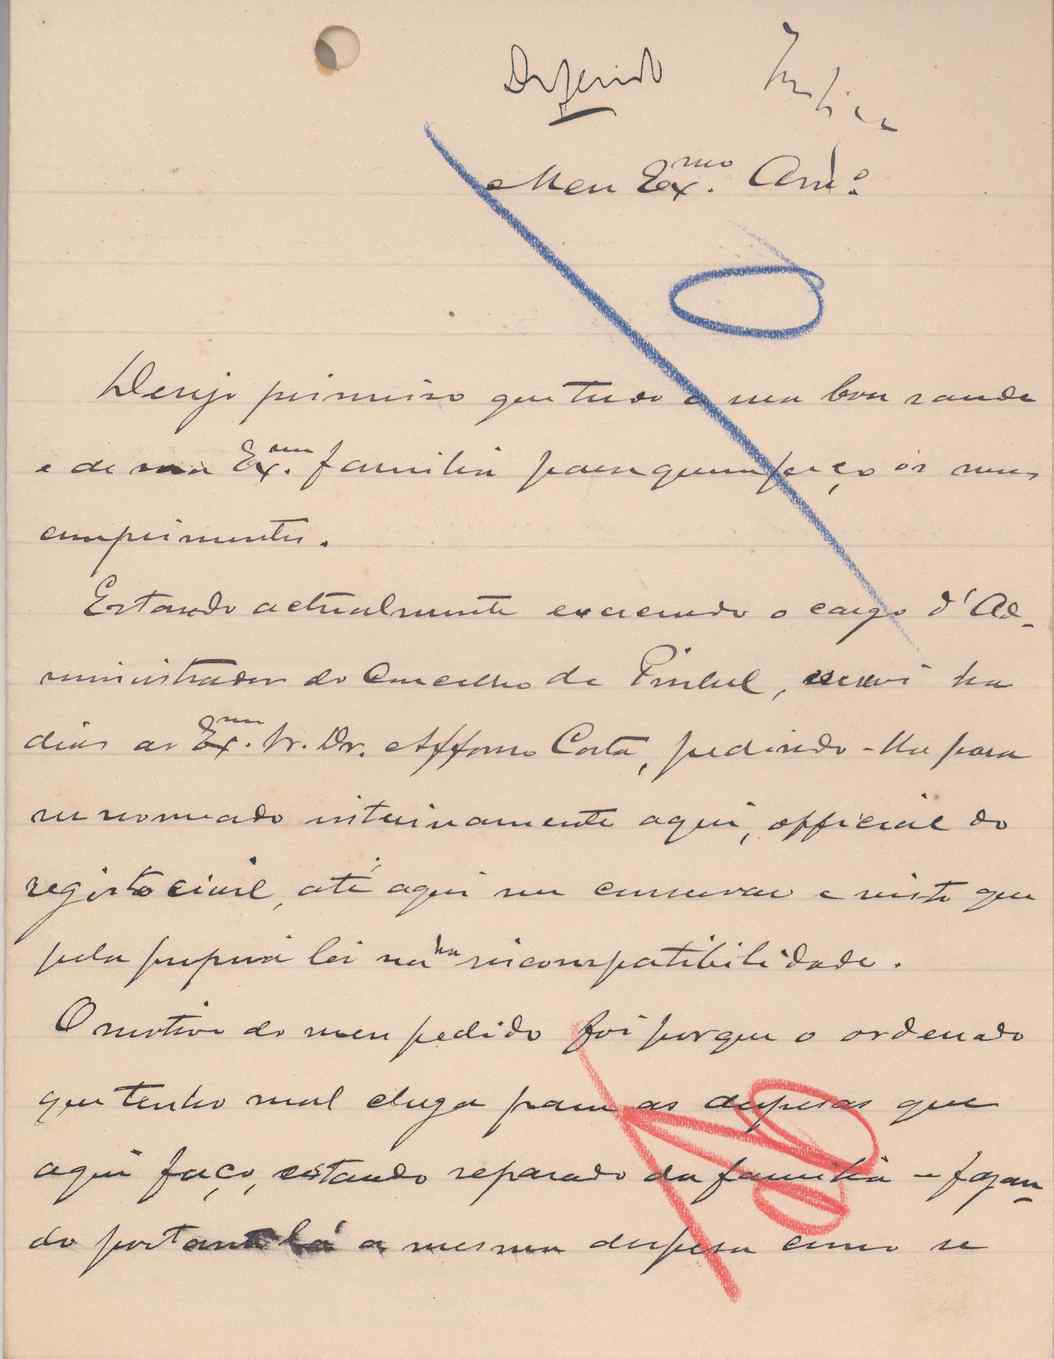 Deferido Justiça
Meu Ex.mo Am.o
Desejo primeiro que tudo a sua boa saude
e de sua Ex.ma familia para quem peço os meus
cumprimentos.
Estando actualmente exercendo o cargo d'Ad-
ministrador do Concelho de Pinhel, escrevi ha
dias ao Ex.mo Sr. Dr. Affonso Costa, pedindo-lhe para
ser nomeado interinamente aqui, official do
registo civil, até aqui me conservar e visto que
pela propria lei não ha incompatibilidade.
O motivo do meu pedido foi porque o ordenado
que tenho mal chega para as despesas que
aqui faço, estando separado da familia e fazen-
do portanto lá a mesma despesa como se